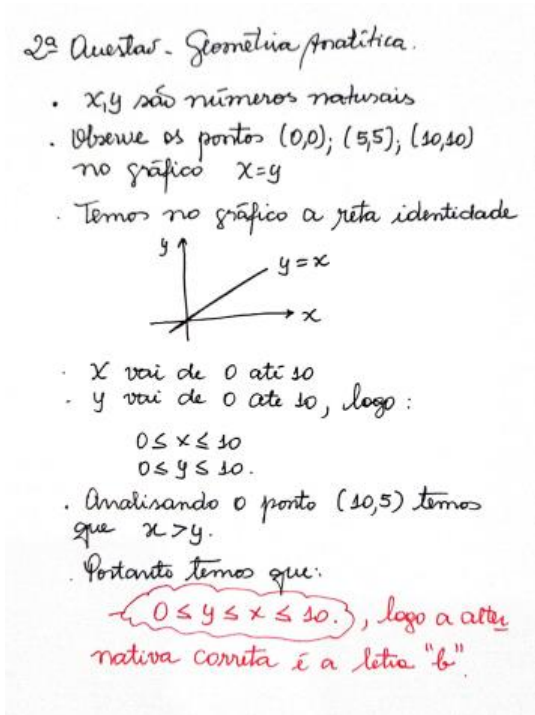 2ª Questão - Geometria Analítica.
• x,y são números naturais
• Observe os pontos (0,0); (5,5); (10,10)
no gráfico x=y
• Temos no gráfico a reta identidade
y
y=x
x
• X vai de 0 até 10
• y vai de 0 ate 10, logo:
0≤x≤10
0≤y≤10.
• Analisando o ponto (10,5) temos
que x>y.
• Portanto temos que:
0≤y≤x≤10., logo a alter
nativa correta é a letra "b".